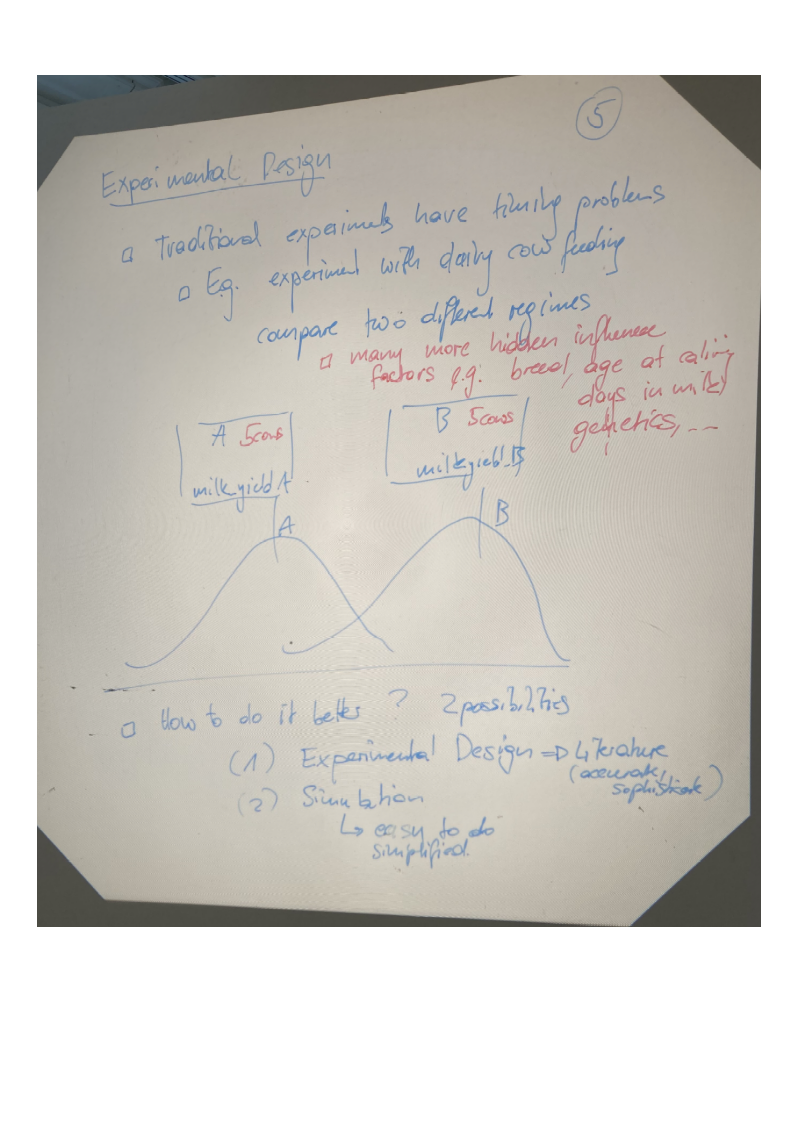 5
Experimental Design
Traditional experiments have timing problems
E.g. experiment with dairy cow feeding
compare two different regimes
many more hidden influence
factors e.g. breed, age at calving
days in milk,
genetics, ...
A 5cows
milk yield A
B 5cows
milk yield B
A
B
How to do it better ? 2 possibilities
(1) Experimental Design => Literature
(accurate,
sophisticate)
(2) Simulation
↳ easy to do
simplified.